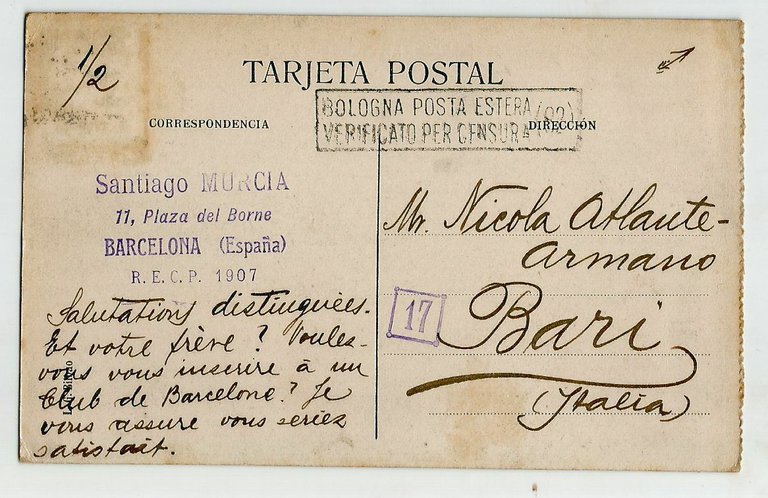 1/2
TARJETA POSTAL
BOLOGNA POSTA ESTERA
VERIFICATO PER CENSURA
CORRESPONDENCIA
DIRECCIÓN
Santiago MURCIA
11, Plaza del Borne
BARCELONA (España)
R. E. C. P. 1907
Salutations distinguées.
Et votre frère? Voules-
vous vous inscrire à un
Club de Barcelone? Je
vous assure vous seriez
satisfait.
Mr. Nicola Atlante-
Armano
17
Bari
(Italia)